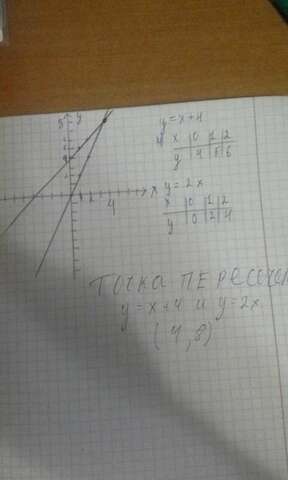 y
y = x + 4
x 0 1 2
y 4 5 6
x
y = 2x
x 0 1 2
y 0 2 4
4
ТОЧКА ПЕРЕСЕЧ
y = x + 4 и y = 2x
(4,8)